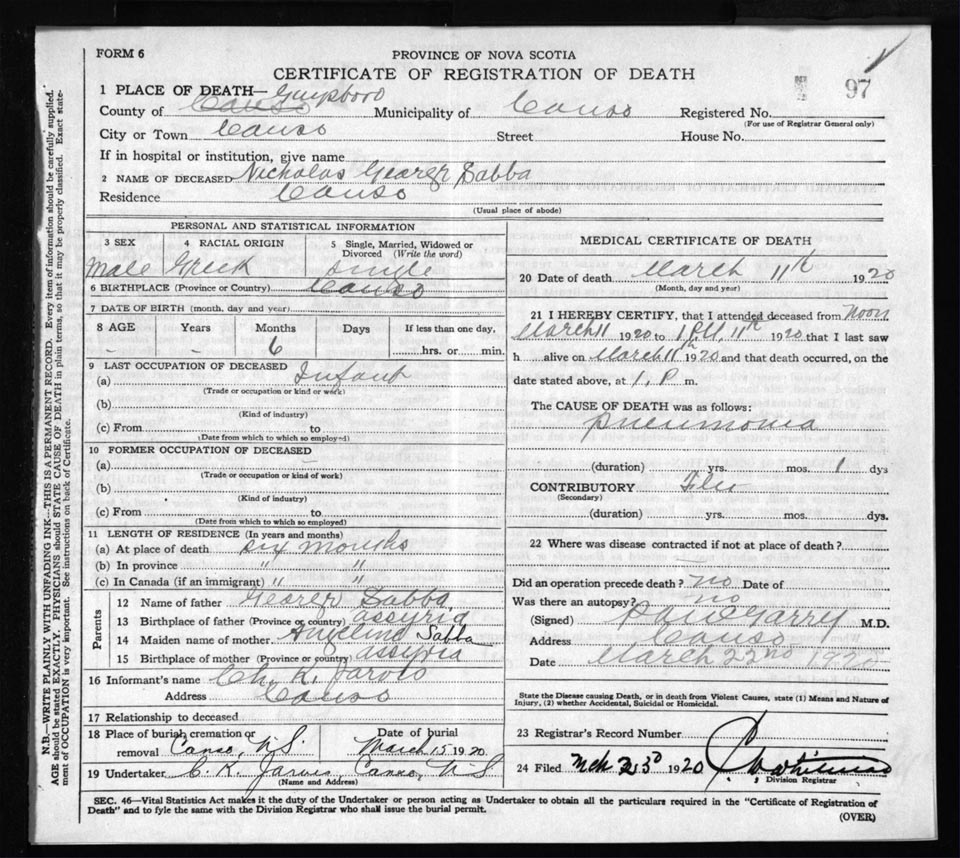 FORM 6
PROVINCE OF NOVA SCOTIA
CERTIFICATE OF REGISTRATION OF DEATH
97
1 PLACE OF DEATH— Guysboro
County of Canso Municipality of Canso Registered No.
(For use of Registrar General only)
City or Town Canso Street House No.
If in hospital or institution, give name
2 NAME OF DECEASED Nicholas George Sabba
Residence Canso
(Usual place of abode)
PERSONAL AND STATISTICAL INFORMATION
3 SEX 4 RACIAL ORIGIN 5 Single, Married, Widowed or Divorced (Write the word)
Male Greek Single
6 BIRTHPLACE (Province or Country) Canso
7 DATE OF BIRTH (month, day and year)
8 AGE Years Months Days If less than one day,
- - 6 hrs. or min.
9 LAST OCCUPATION OF DECEASED
(a) Infant
(Trade or occupation or kind or work)
(b)
(Kind of industry)
(c) From to
(Date from which to which so employed)
10 FORMER OCCUPATION OF DECEASED
(a)
(Trade or occupation or kind of work)
(b)
(Kind of industry)
(c) From to
(Date from which to which so employed)
11 LENGTH OF RESIDENCE (In years and months)
(a) At place of death six months
(b) In province " "
(c) In Canada (if an immigrant) " "
Parents
12 Name of father George Sabba
13 Birthplace of father (Province or country) assyria
14 Maiden name of mother Angelina Sabba
15 Birthplace of mother (Province or country) assyria
16 Informant's name Ch. K. Jarvis
Address Canso
17 Relationship to deceased
18 Place of burial, cremation or removal Canso, N.S. Date of burial March 15 1920
19 Undertaker C. K. Jarvis, Canso, N S
(Name and Address)
MEDICAL CERTIFICATE OF DEATH
20 Date of death March 11th 1920
(Month, day and year)
21 I HEREBY CERTIFY, that I attended deceased from Noon
March 11 1920 to 1 P.M. 11th 1920 that I last saw
h alive on March 11th 1920 and that death occurred, on the
date stated above, at 1. P m.
The CAUSE OF DEATH was as follows:
Pneumonia
(duration) yrs. mos. 1 dys
CONTRIBUTORY Flu
(Secondary)
(duration) yrs. mos. dys.
22 Where was disease contracted if not at place of death?
Did an operation precede death? no Date of
Was there an autopsy? no
(Signed) M.D.
Address Canso
Date March 22nd 1920
State the Disease causing Death, or in death from Violent Causes, state (1) Means and Nature of
Injury, (2) whether Accidental, Suicidal or Homicidal.
23 Registrar's Record Number
24 Filed Mch 23d 1920
Division Registrar
SEC. 46—Vital Statistics Act makes it the duty of the Undertaker or person acting as Undertaker to obtain all the particulars required in the "Certificate of Registration of
Death" and to fyle the same with the Division Registrar who shall issue the burial permit.
(OVER)
N.B.—WRITE PLAINLY WITH UNFADING INK—THIS IS A PERMANENT RECORD. Every item of information should be carefully supplied.
AGE should be stated EXACTLY. PHYSICIANS should STATE CAUSE OF DEATH in plain terms, so that it may be properly classified. Exact state-
ment of OCCUPATION is very important. See instructions on back of Certificate.